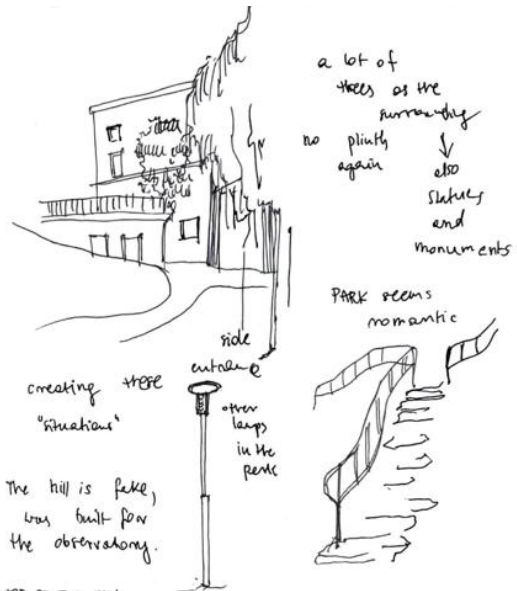 a lot of
trees as the
surrounding
no plinth
again
also
statues
and
monuments
PARK seems
romantic
side
entrance
creating these
"situations"
other
lamps
in the
park
The hill is fake,
was built for
the observatory.